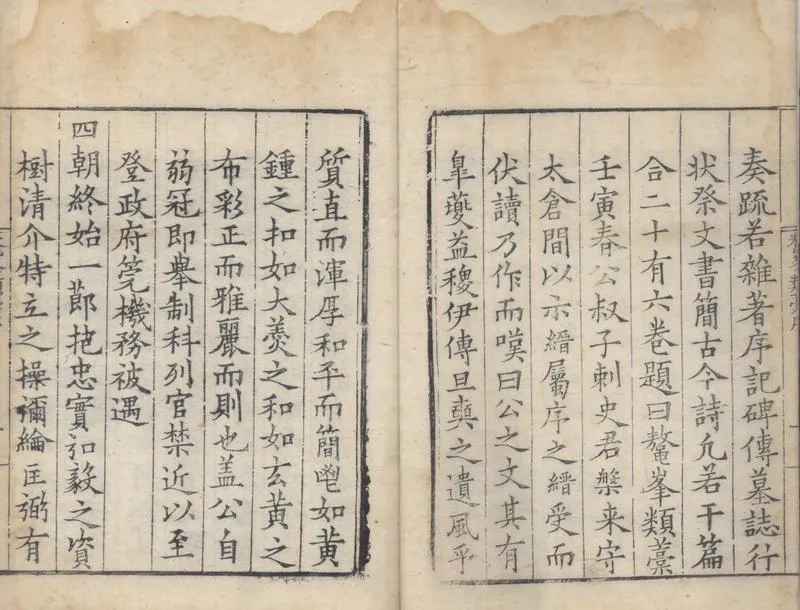 奏疏若雜著序記碑傳墓誌行
狀祭文書簡古今詩凢若干篇
合二十有六卷題曰鼇峯類藁
壬寅春公叔子刺史君槃来守
太倉間以示縉屬序之縉受而
伏讀乃作而嘆曰公之文其有
臯夔益稷伊傅旦奭之遺風乎
質直而渾厚和平而簡鬯如黄
鍾之扣如大羮之和如玄黄之
布彩正而雅麗而則也盖公自
弱冠即舉制科列官禁近以至
登政府筦機務被遇
四朝終始一節抱忠實弘毅之資
樹清介特立之操彌綸匡弼有